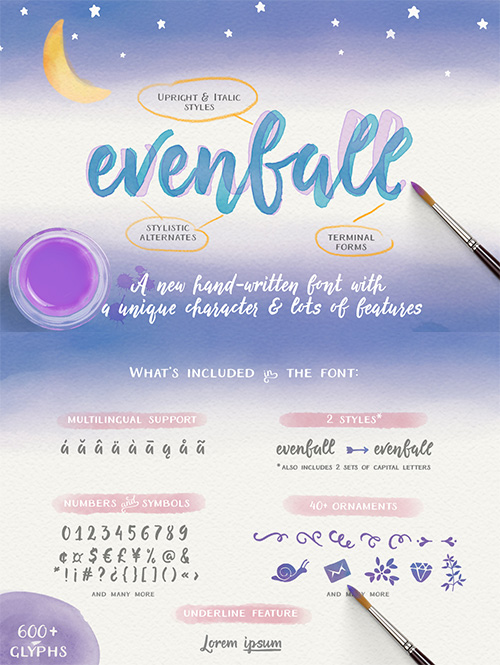 Upright & Italic
styles
evenfall
stylistic
alternates
terminal
forms
A new hand-written font with
a unique character & lots of features
What's included in the font:
multilingual support
á ă â ä à ā ą å ã
2 styles*
evenfall evenfall
*also includes 2 sets of capital letters
numbers and symbols
0123456789
¢¤$€£¥%@&
*!¡#?¿{}[]()«›
and many more
40+ ornaments
and many more
underline feature
Lorem ipsum
600+
glyphs